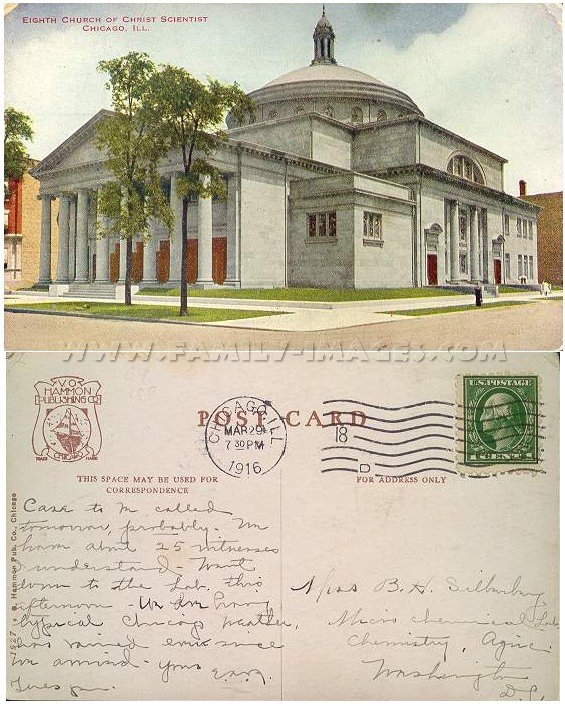 EIGHTH CHURCH OF CHRIST SCIENTIST
CHICAGO, ILL.
WWW.FAMILY-IMAGES.COM
V.O.
HAMMON
PUBLISHING CO
TRADE CHICAGO MARK
POST CARD
CHICAGO, ILL.
MAR 29
7 30 PM
1916
18
D
U.S. POSTAGE
THIS SPACE MAY BE USED FOR
CORRESPONDENCE
FOR ADDRESS ONLY
V. O. Hammon Pub. Co., Chicago
Case to be called
tomorrow, probably. 
have about 25 witnesses
I understand. Went
down to the Lab. this
afternoon. We are having
typical Chicago weather,
has rained ever since
we arrived. Yours
Miss B. H. Silberberg
Micro chemical Lab.
Chemistry, Agric.
Washington
D.C.